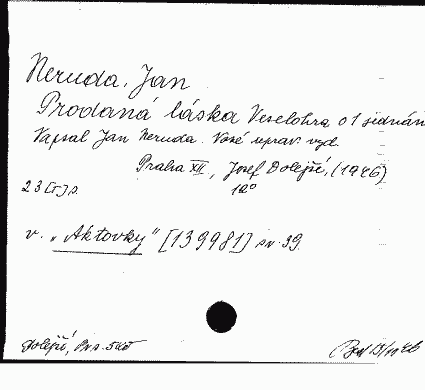 Neruda, Jan
Prodaná láska Veselohra o 1 jednán
Napsal Jan Neruda. Nové uprav. vyd.
Praha XII, Josef Dolejší, (1946)
23 [r] s. 12°
v. „Aktovky" [139981] sv. 39.
Dolejší,